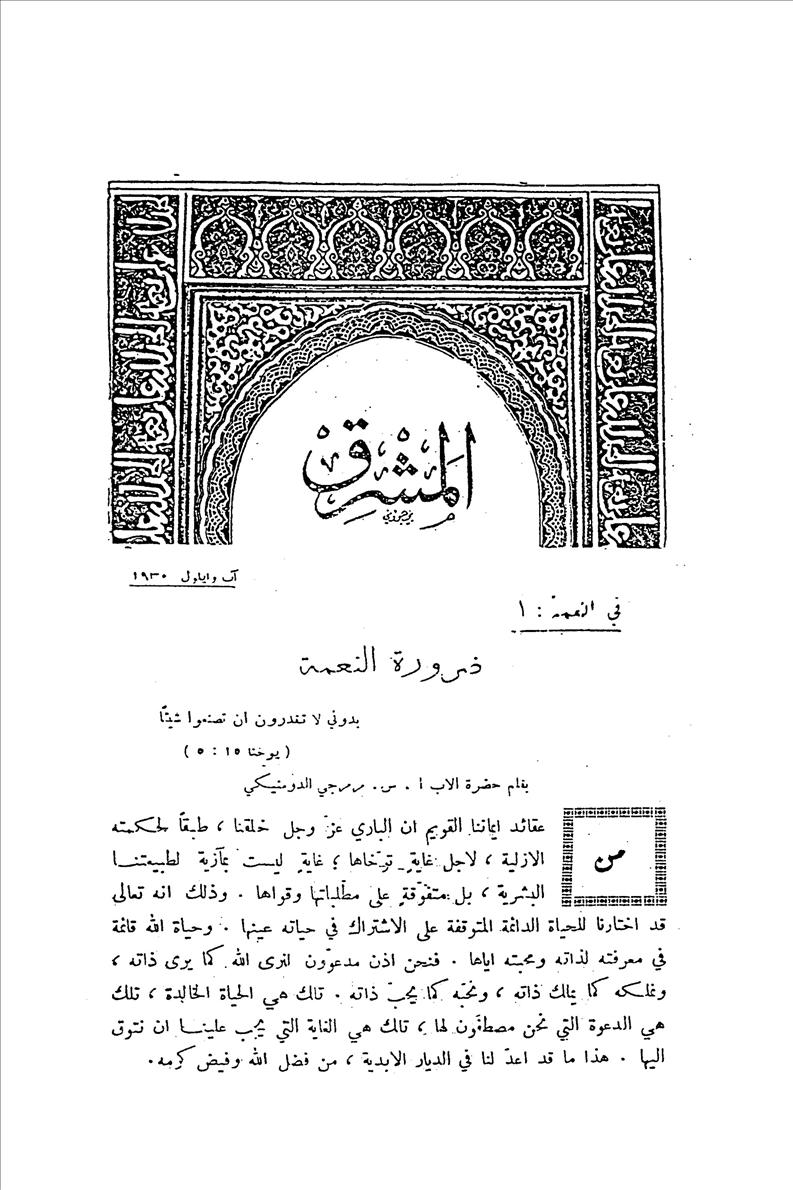 المشرق
آب وايلول ١٩٣٠
في النعمة : ١
ضرورة النعمة
بدوني لا تقدرون ان تصنعوا شيئًا
( يوحنا ١٥ : ٥ )
بقلم حضرة الاب ا . س. مرمرجي الدومنيكي
من عقائد ايماننا القويم ان الباري عزّ وجل خلقنا ، طبقاً لحكمته
الازلية ، لاجل غايةٍ توخّاها ؛ غايةٍ ليست بمآزية لطبيعتنـا
البشرية ، بل متفوّقةٍ على مطّلباتها وقواها . وذلك انه تعالى
قد اختارنا للحياة الدائمة المتوقفة على الاشتراك في حياته عينها . وحياة الله قائمة
في معرفته لذاته ومحبته اياها . فنحن اذن مدعوّون لنرى الله كما يرى ذاته ،
ونملكه كما يملك ذاته ، ونحبّه كما يحبّ ذاته . تلك هي الحياة الخالدة ، تلك
هي الدعوة التي نحن مصطفَون لها ، تلك هي الغاية التي يجب علينـا ان نتوق
اليها . هذا ما قد اعدّ لنا في الديار الابدية ، من فضل الله وفيض كرمه.